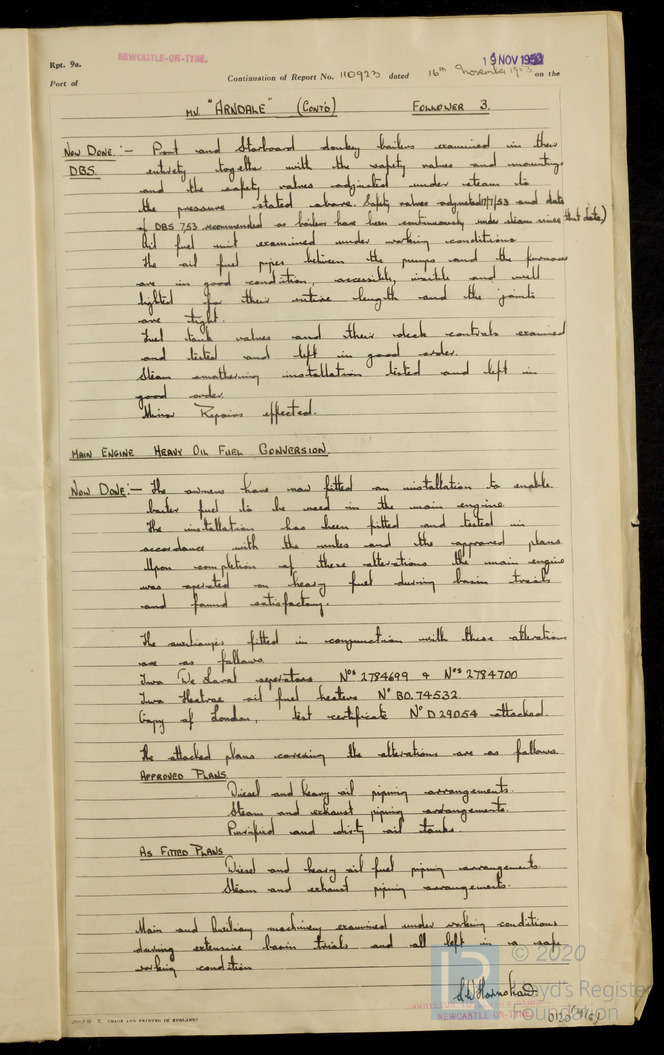 Rpt. 9a.
NEWCASTLE-ON-TYNE.
19 NOV 195
Port of
Continuation of Report No. 110923 dated 16th November 1953 on the
MV. "ARNDALE" (CONTD) FOLLOWER 3.
NOW DONE:- Port and Starboard donkey boilers examined in their
DBS. entirety together with the safety valves and mountings
and the safety valves adjusted under steam to
the pressure stated above. Safety valves adjusted 17/7/53 and date
of DBS 7,53 recommended as boilers have been continuously under steam since that date)
Oil fuel unit examined under working conditions
The oil fuel pipes between the pumps and the furnaces
are in good condition, accessible, visible and well
lighted for their entire length and the joints
are tight.
Fuel tank valves and their deck controls examined
and tested and left in good order.
Steam smothering installation tested and left in
good order.
Minor Repairs effected.
MAIN ENGINE HEAVY OIL FUEL CONVERSION
NOW DONE:- The owners have now fitted an installation to enable
boiler fuel to be used in the main engine.
The installation has been fitted and tested in
accordance with the rules and the approved plans.
Upon completion of these alterations the main engine
was operated on heavy fuel during basin trials
and found satisfactory.
The auxiliaries fitted in conjunction with these alterations
are as follows.
Two De Laval seperators Nos 2784699 & Nos 2784700
Two Heatrae oil fuel heaters No BO.74532.
Copy of London, test certificate No D29054 attached.
The attached plans covering the alterations are as follows
APPROVED PLANS
Diesel and heavy oil piping arrangements.
Steam and exhaust piping arrangements.
Purified and dirty oil tanks.
AS FITTED PLANS
Diesel and heavy oil fuel piping arrangements.
Steam and exhaust piping arrangements.
Main and Auxiliary machinery examined under working conditions
during extensive basin trials and all left in a safe
working condition
© 2020
Lloyd's Register
Foundation
NEWCASTLE-ON-TYNE
T. (MADE AND PRINTED IN ENGLAND)